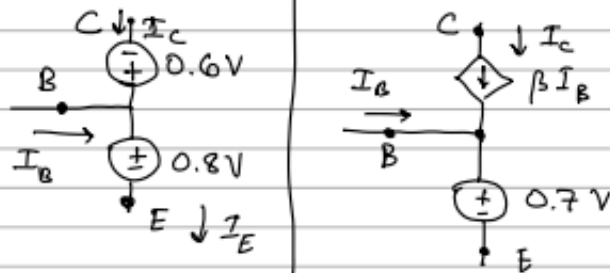 C ↓ I_C
- + 0.6V
B
I_B →
+ - 0.8V
E ↓ I_E
C
↓ I_C
↓ βI_B
I_B →
B
+ - 0.7 V
E